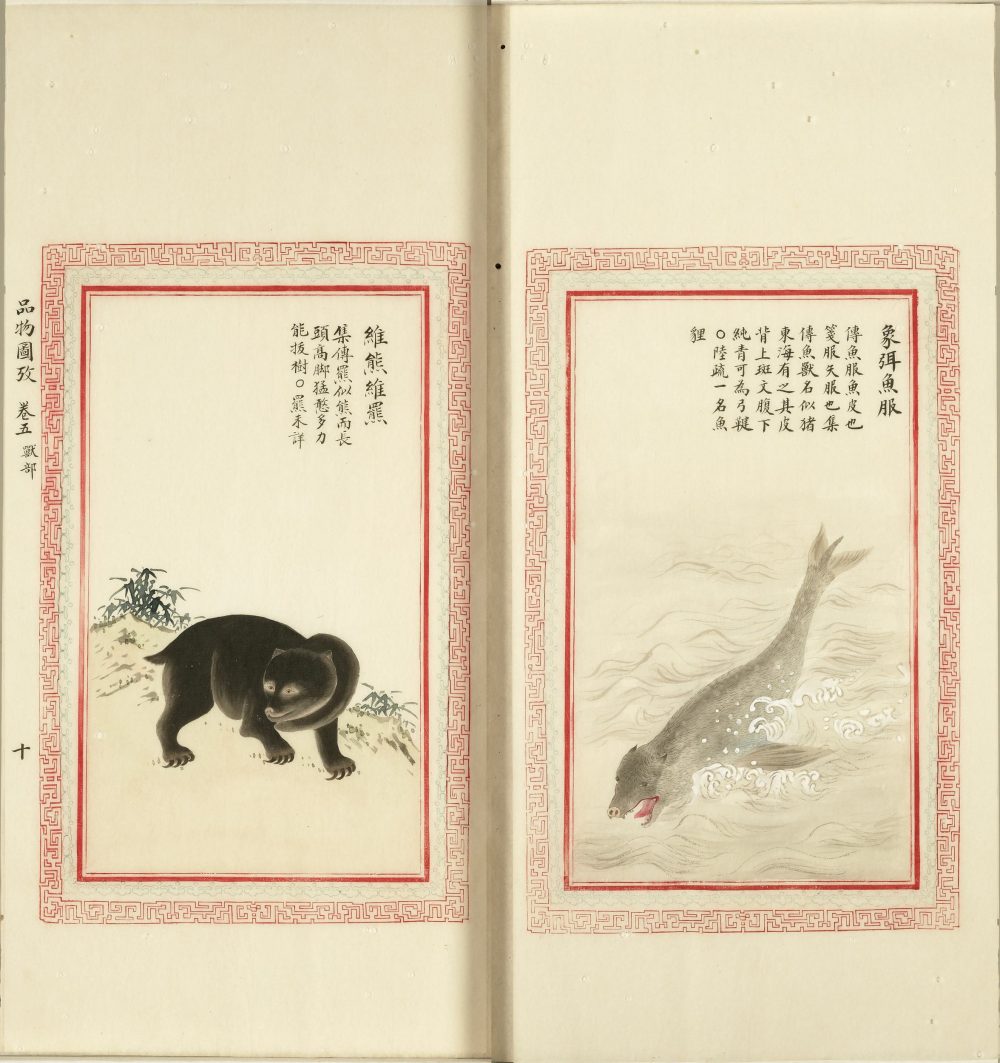 象弭魚服
傳魚服魚皮也
箋服矢服也集
傳魚獸名似猪
東海有之其皮
背上斑文腹下
純青可為弓鞬
○陸疏一名魚
貍
維熊維羆
集傳羆似熊而長
頭高脚猛憨多力
能拔樹○羆未詳
品物圖攷 卷五 獸部
十